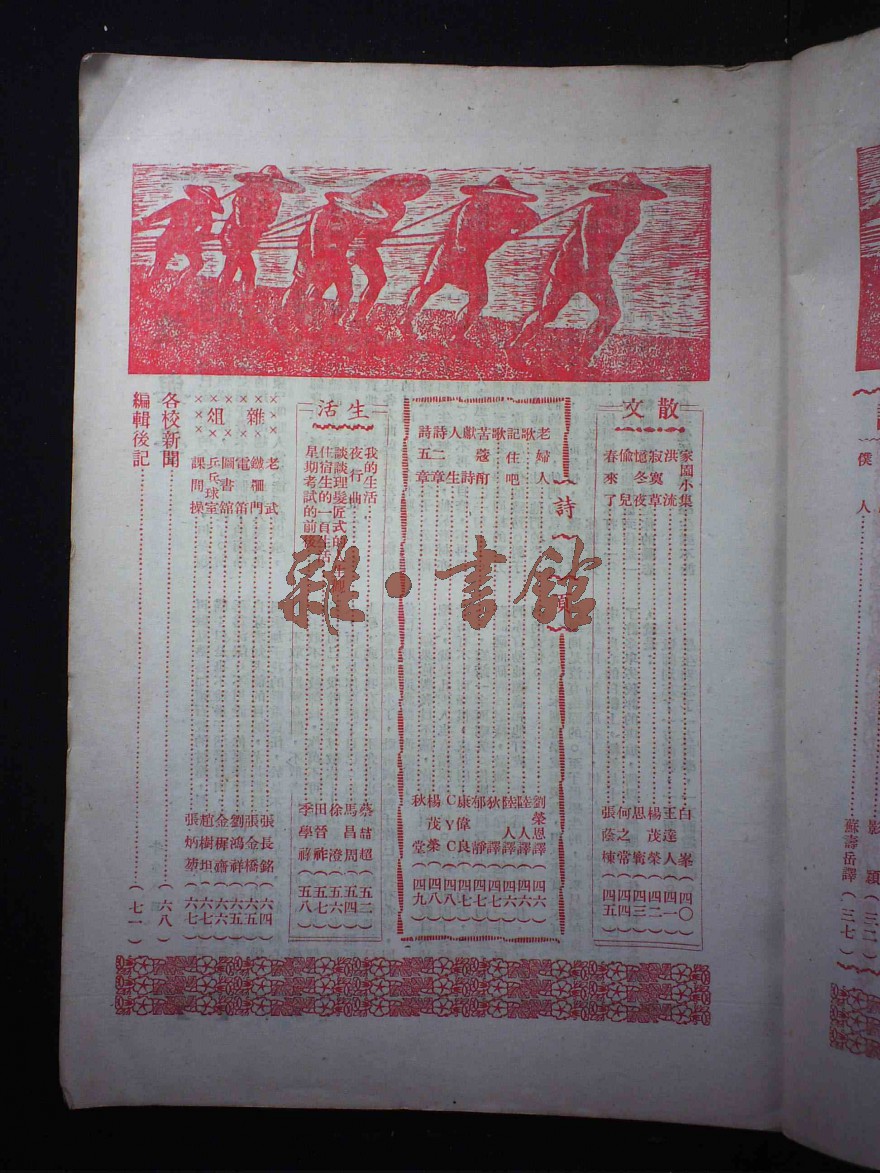 影 穎(三二)
僕人 蘇壽岳譯(三七)
散文
家園小集 白峯(四〇)
洪流 王達人(四一)
寂寞草 楊茂榮(四二)
憶冬夜 思(四三)
偷兒 何之常(四四)
春來了 張蔭棟(四五)
詩頁
老婦人 劉榮恩譯(四六)
歌 陸人譯(四六)
記住吧 陸人譯(四六)
歌 狄譯(四七)
苦 郁靜(四七)
獻詩 康偉良(四七)
人生 CYC(四八)
詩二章 楊茂榮(四八)
詩五章 秋堂(四九)
生活
我的生活 蔡喆超(五二)
夜行曲 馬昌周(五四)
談談理髮匠式的 徐澄
住宿生的一頁生活 田晉祚
星期考試的前後 季學(五八)
雜俎
老武 張長銘(六四)
鐵柵門 張金橋(六五)
電笛 劉鴻祥(六五)
圖書館 金齋(六六)
乒乓球室 趙樹坦(六七)
課間操 張炳(六七)
各校新聞(六八)
編輯後記(七一)
雜·書館